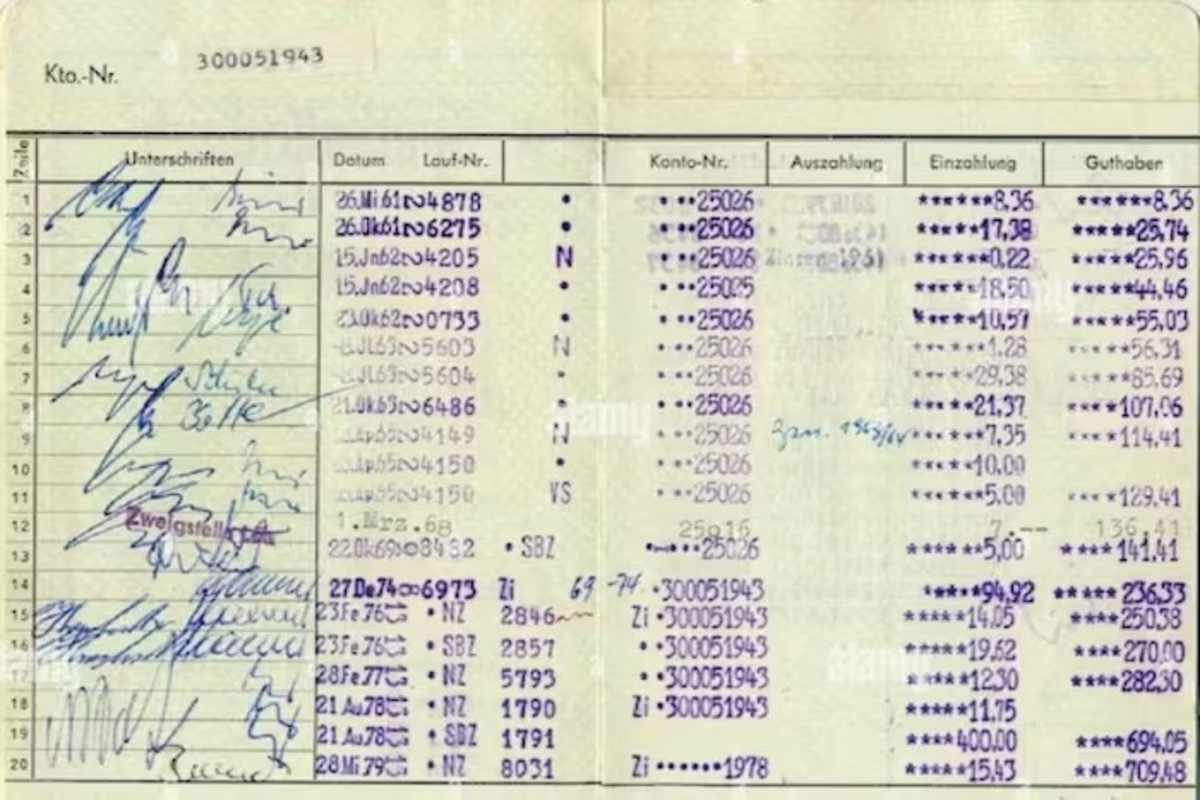 Kto.-Nr. 300051943
Zeile Unterschriften Datum Lauf-Nr. Konto-Nr. Auszahlung Einzahlung Guthaben
1 26.Mi.61 4878 • •••25026 ******8,36 ******8,36
2 26.Ok61 6275 • •••25026 *****17,38 *****25,74
3 15.Jn62 4205 N •••25026 ******0,22 *****25,96
4 15.Jn62 4208 • •••25025 *****18,50 *****44,46
5 23.Ok62 0733 • •••25026 *****10,57 *****55,03
6 8.Jl.63 5603 N •••25026 ******1,28 *****56,31
7 8.Jl.63 5604 • •••25026 *****29,38 *****85,69
8 21.Ok63 6486 • •••25026 *****21,37 ****107,06
9 65 4149 N •••25026 1963/64 ******7,35 ****114,41
10 65 4150 • •••25026 *****10,00
11 65 4150 VS •••25026 ******5,00 ****129,41
12 Zweigstelle 1.Mrz.68 7.-- 136,41
13 22.Ok69 8432 • SBZ 25026 ******5,00 ****141,41
14 27De74 6973 Zi 69 -74 •300051943 ****94,92 ***** 236,33
15 23Fe76 • NZ 2846 Zi •300051943 *****14,05 ****250,38
16 23Fe76 • SBZ 2857 ••300051943 *****19,62 ****270,00
17 28Fe77 • NZ 5793 ••300051943 *****12,30 ****282,30
18 21Au78 • NZ 1790 Zi •300051943 *****11,75
19 21Au78 • SBZ 1791 ****400,00 ****694,05
20 28Mi79 • NZ 8031 Zi ••••••1978 *****15,43 ****709,48